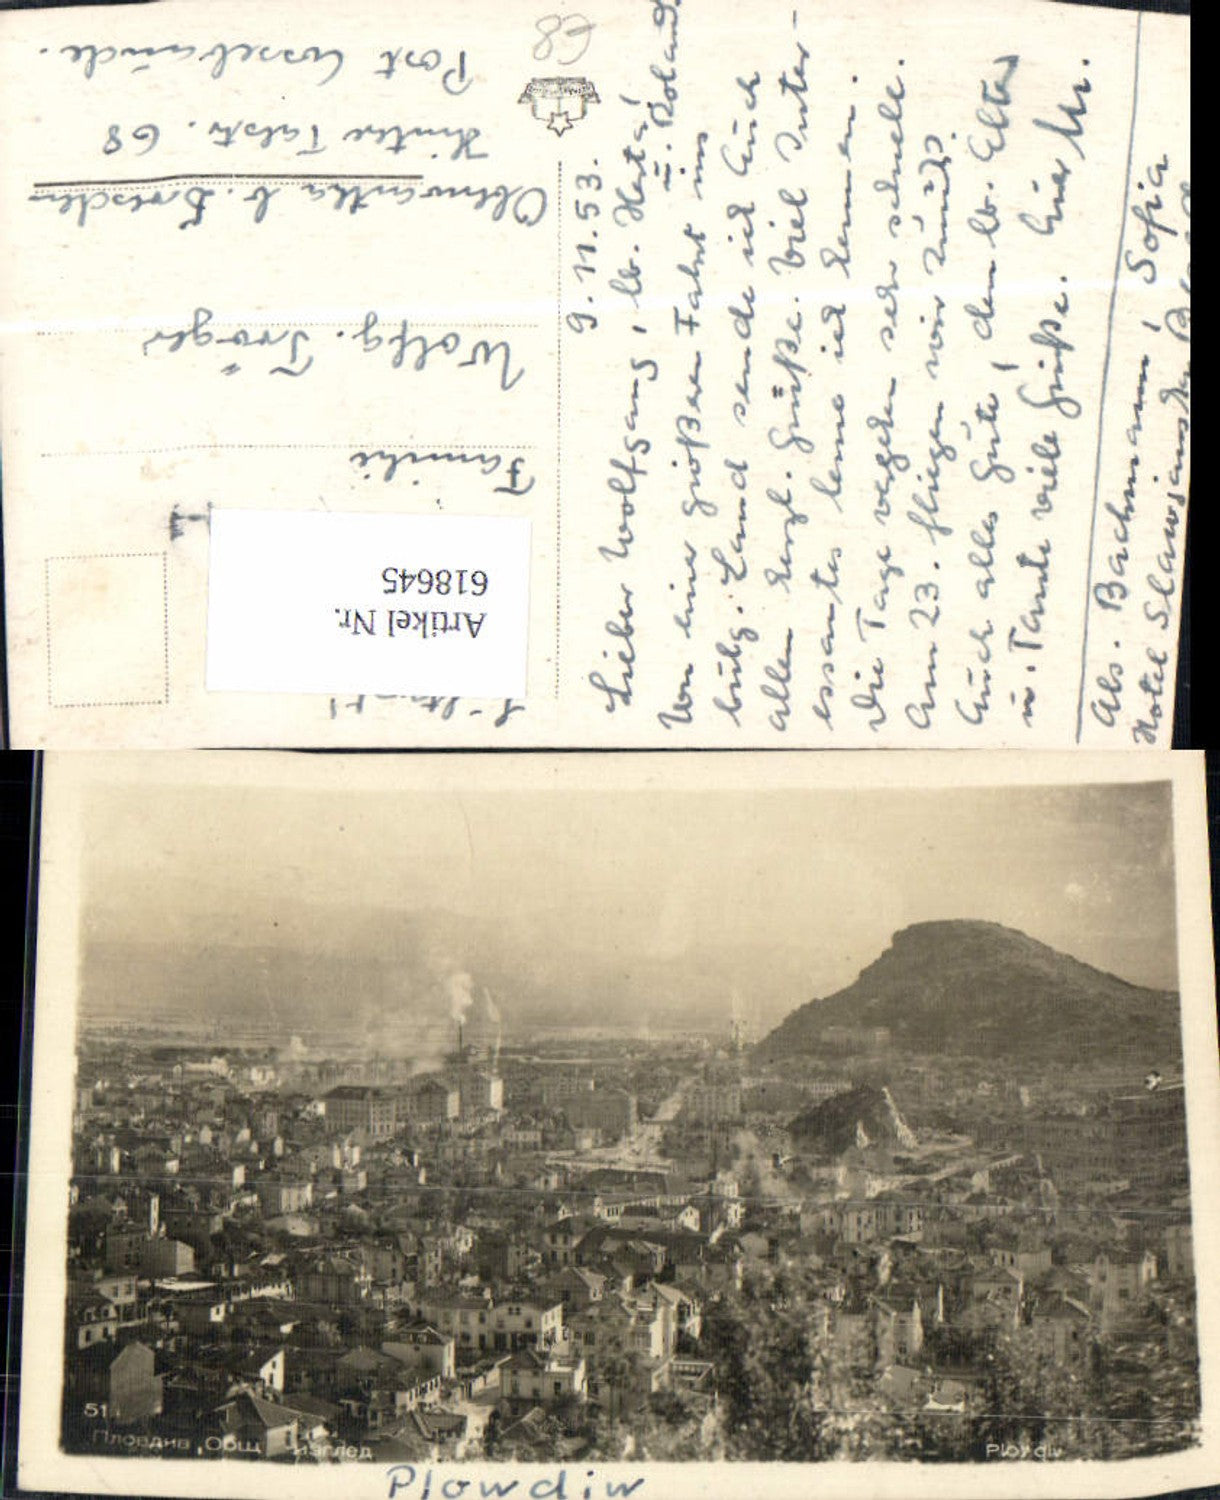 68
9. 11. 53.
Lieber Wolfgang, lb. Herta,
u. Roland
Von einer großen Fahrt ins
bulg. Land sende ich Euch
allen herzl. Grüße. Viel Inter-
essantes lerne ich kennen.
Die Tage vergehen sehr schnell.
Am 23. fliegen wir zurück.
Euch alles Gute, den lb. Eltern
u. Tante viele Grüße. Euer
Abs. Bachmann, Sofia
Hotel Slawjanska
Familie
Wolfg. Tröger
b. Dresden
Hintere Talstr. 68
Post Cossebaude.
Artikel Nr.
618645
51
Пловдив, Общ изглед
Plovdiv
Plowdiw